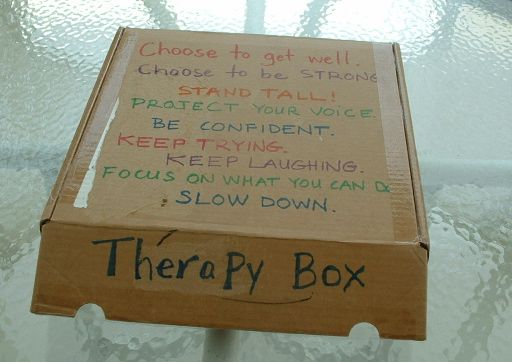 Choose to get well.
Choose to be STRONG
STAND TALL!
PROTECT YOUR VOICE.
BE CONFIDENT.
KEEP TRYING.
KEEP LAUGHING.
FOCUS ON WHAT YOU CAN DO
SLOW DOWN.
Therapy Box